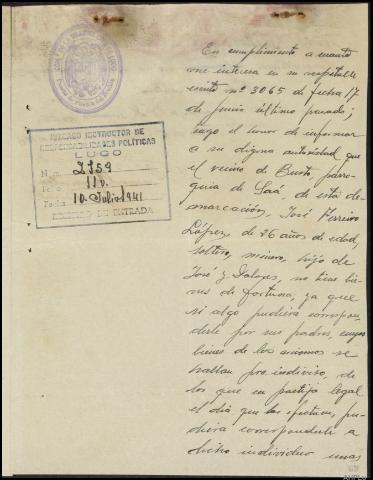 JUZGADO INSTRUCTOR DE
RESPONSABILIDADES POLÍTICAS
LUGO
Núm. 2559
Folio 11 v.
Fecha 10 Julio 1941
REGISTRO DE ENTRADA
En cumplimiento a cuanto
me interesa en su respetable
escrito nº 3065 de fecha 17
de Junio último pasado;
tengo el honor de informar
a su digna autoridad que
el vecino de parro-
quia de Saá, de esta de-
marcación, José Ferreiro
López, de 26 años de edad,
soltero, minero, hijo de
José y Dolores, no tiene bie-
nes de fortuna, ya que
si algo pudiera correspon-
derle por sus padres, cuyos
bienes de los mismos se
hallan pro-indiviso, de
los que en partija legal
el día que las efectuen, pu-
diera corresponderle a
dicho individuo unas